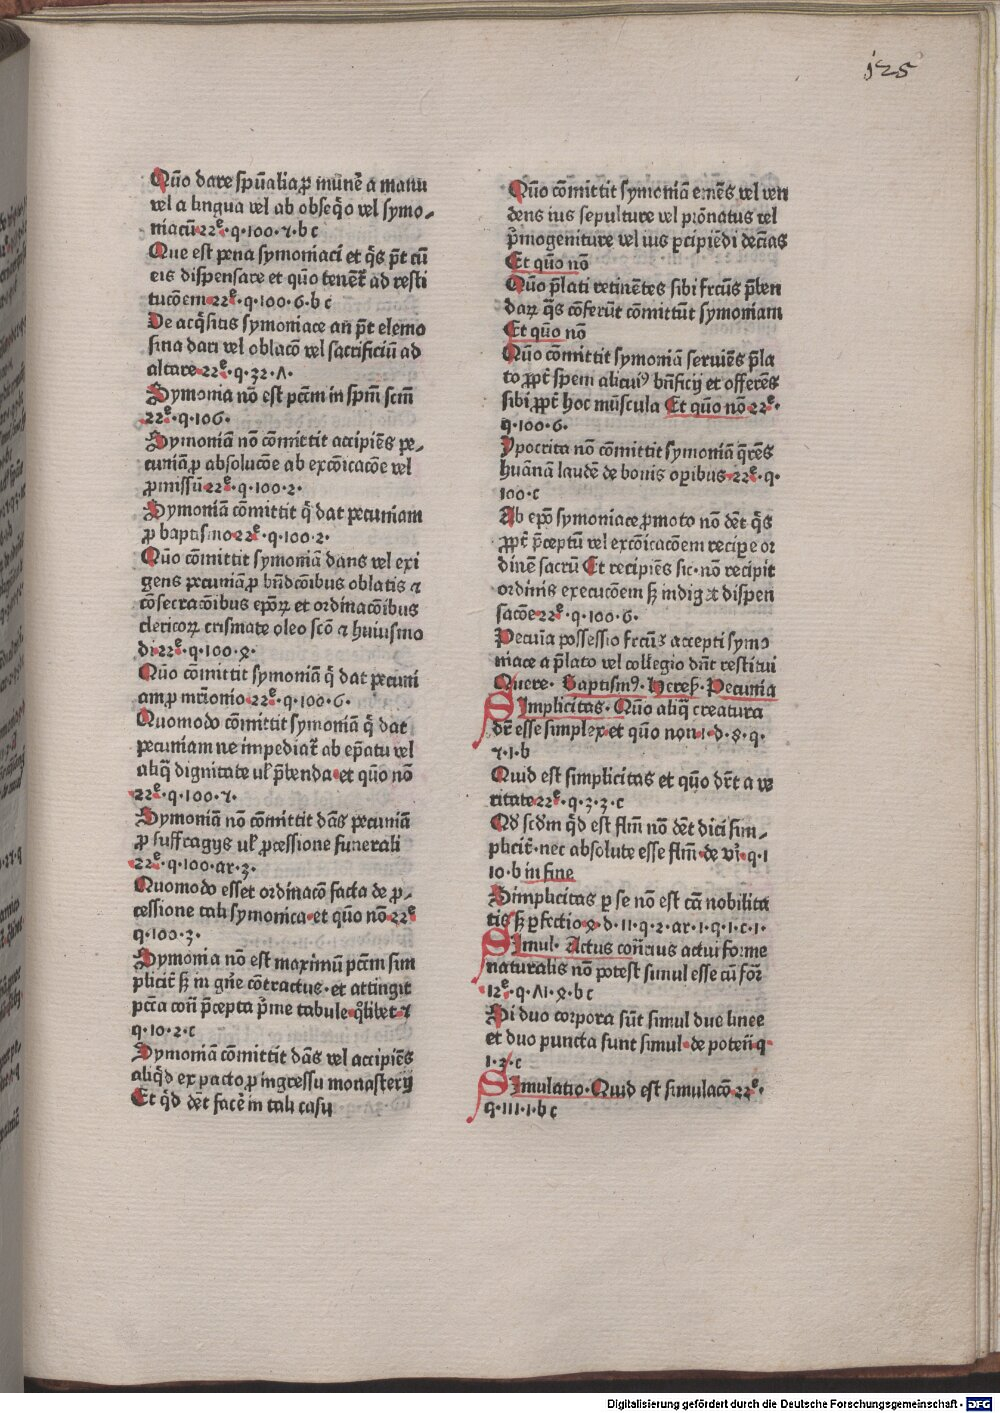 125
Quo͞ dare sp͞ualia ꝓ mune͞r a manu
vel a lingua vel ab obseq͞o vel symo⸗
niacu͞ 22e·q·100·7·b c
Que est pena symoniaci et q͞s p͞t cu͞
eis dispensare et quo͞ tene͞t ad resti
tuco͞em 22e·q·100·6·b c
De acq͞sitis symoniace an p͞t elemo
sina dari vel oblaco͞ vel sacrificiu͞ ad
altare 22e·q·32·Λ·
Symonia no͞ est pc͞cm in sp͞m sc͞m
22e·q·106·
Symonia͞ no͞ co͞mittit accipie͞s pe⸗
cunia͞ ꝓ absoluco͞e ab exco͞icaco͞e vel
ꝓmissu͞ 22e·q·100·2·
Symonia͞ co͞mittit q͞ dat pecuniam
ꝓ baptismo 22e·q·100·2·
Quo͞ co͞mittit symonia͞ dans vel exi
gens pecunia͞ ꝓ bn͞dco͞ibus oblatis ⁊
co͞secraco͞ibus epo͞ꝝ et ordinaco͞ibus
clericoꝝ crismate oleo sco͞ ⁊ huiusmo
di 22e·q·100·8·
Quo͞ co͞mittit symonia͞ q͞ dat pecuni
am ꝓ mr͞imonio 22e·q·100·6·
Quomodo co͞mittit symonia͞ q͞ dat
pecuniam ne impediat͞ ab ep͞atu vel
aliq͞ dignitate ul' p͞benda et quo͞ no͞
22e·q·100·7·
Symonia͞ no͞ co͞mittit da͞s pecunia͞
ꝓ suffragijs ul' ꝓcessione funerali
22e·q·100·ar·3·
Quomodo esset ordinaco͞ facta de ꝓ⸗
cessione tali symonica et quo͞ no͞ 22e
q·100·3·
Symonia no͞ est maximu͞ pc͞cm sim
plicit͞ sꝫ in gn͞e co͞tractus·et attingit
pc͞ca con͞ p͞cepta p͞me tabule q͞libet 7
q·10·2·c
Symonia͞ co͞mittit da͞s vel accipie͞s
aliq͞d ex pacto ꝓ ingressu monasterij
Et q͞d de͞t face͞ in tali casu
Quo͞ co͞mittit symonia͞ eme͞s vel ven
dens ius sepulture vel pro͞natus vel
p͞mogeniture vel ius ꝑcipie͞di deci͞as
Et quo͞ no͞
Quo͞ p͞lati retine͞tes sibi frc͞us p͞ben
daꝝ q͞s co͞feru͞t co͞mittu͞t symoniam
Et quo͞ no͞
Quo͞ co͞mittit symonia͞ seruie͞s p͞la
to ꝓpt͞ spem alicuiꝰ bn͞ficij et offere͞s
sibi ꝓpt͞ hoc mu͞scula Et quo͞ no͞ 22e·
q·100·6·
Ypocrita no͞ co͞mittit symonia͞ q͞re͞s
hu͞ana͞ laude͞ de bonis oꝑibus 22e·q·
100·c
Ab epo͞ symoniace ꝓmoto no͞ de͞t q͞s
ꝓpt͞ p͞ceptu͞ vel exco͞icaco͞em reciꝑe or
dine͞ sacru͞ Et recipie͞s sic·no͞ recipit
ordinis execuco͞em sꝫ indiget dispen
saco͞e 22e·q·100·6·
Pecu͞ia possessio frc͞us accepti symo
niace a p͞lato vel collegio dn͞t restitui
Quere· Baptismꝰ· Heres͞· Pecunia
Simplicitas· Quo͞ aliq͞ creatura
dr͞ esse simplex et quo͞ non 1·d·8·q·
7·1·b
Quid est simplicitas et quo͞ dr͞t a ve
ritate 22e·q·3·3·c
Qd͞ scd͞m q͞d est flm͞ no͞ de͞t dici sim⸗
plicit͞·nec absolute esse flm͞ de vi͞·q·1
10·b in fine
Simplicitas ꝑ se no͞ est ca͞ nobilita
tis sꝫ ꝑfectio 8·d·11·q·2·ar·1·q·1·c·1·
Simul· Actus con͞rius actui forme
naturalis no͞ potest simul esse cu͞ for͞
12e·q·Λ1·8·b c
Si duo corpora su͞t simul due linee
et duo puncta sunt simul de poten͞ q·
1·3·c
Simulatio·Quid est simulaco͞ 22e·
q·111·1·b c
Digitalisierung gefördert durch die Deutsche Forschungsgemeinschaft - DFG